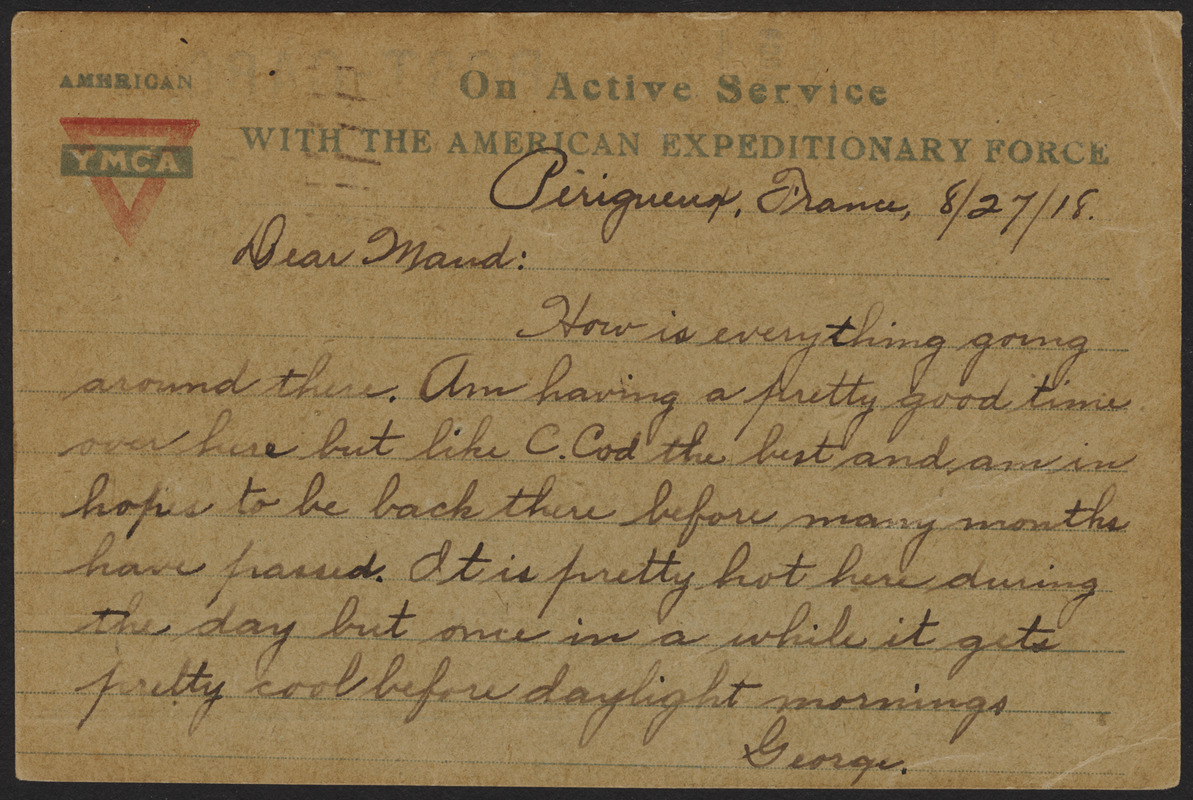 AMERICAN
YMCA
On Active Service
WITH THE AMERICAN EXPEDITIONARY FORCE
Périgueux, France, 8/27/18.
Dear Maud:
How is everything going
around there. Am having a pretty good time
over here but like C.Cod the best and am in
hopes to be back there before many months
have passed. It is pretty hot here during
the day but once in a while it gets
pretty cool before daylight mornings
George.